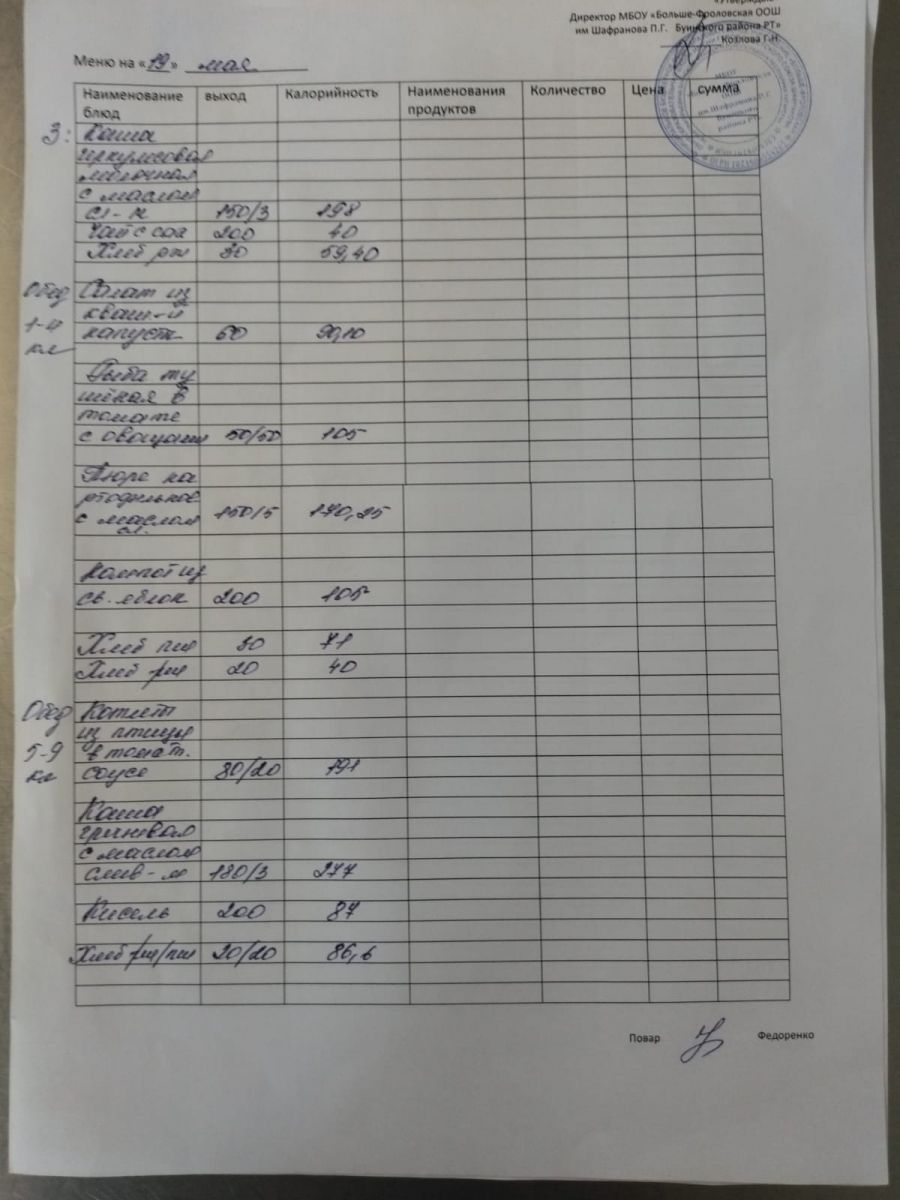 «Утверждаю»
Директор МБОУ «Больше-Фроловская ООШ
им Шафранова П.Г. Буинского района РТ»
Козлова Г.Н.
Меню на «19» мая
Наименование блюд выход Калорийность Наименования продуктов Количество Цена сумма
З: Каша
геркулесовая
молочная
с маслом
сл-м 150/3 198
Чай с сах 200 40
Хлеб рж 30 59,40
Обед Салат из
1-4 кваш-й
кл капусты 60 90,10
Рыба ту
шёная в
томате
с овощами 50/50 105
Пюре ка
ртофельное
с маслом 150/5 170,25
сл.
Компот из
св. яблок 200 105
Хлеб пш 30 71
Хлеб рж 20 40
Обед Котлеты
из птицы
5-9 в томат.
кл соусе 80/20 191
Каша
гречневая
с маслом
слив-м 180/3 277
Кисель 200 87
Хлеб рж/пш 20/20 86,6
Повар Федоренко